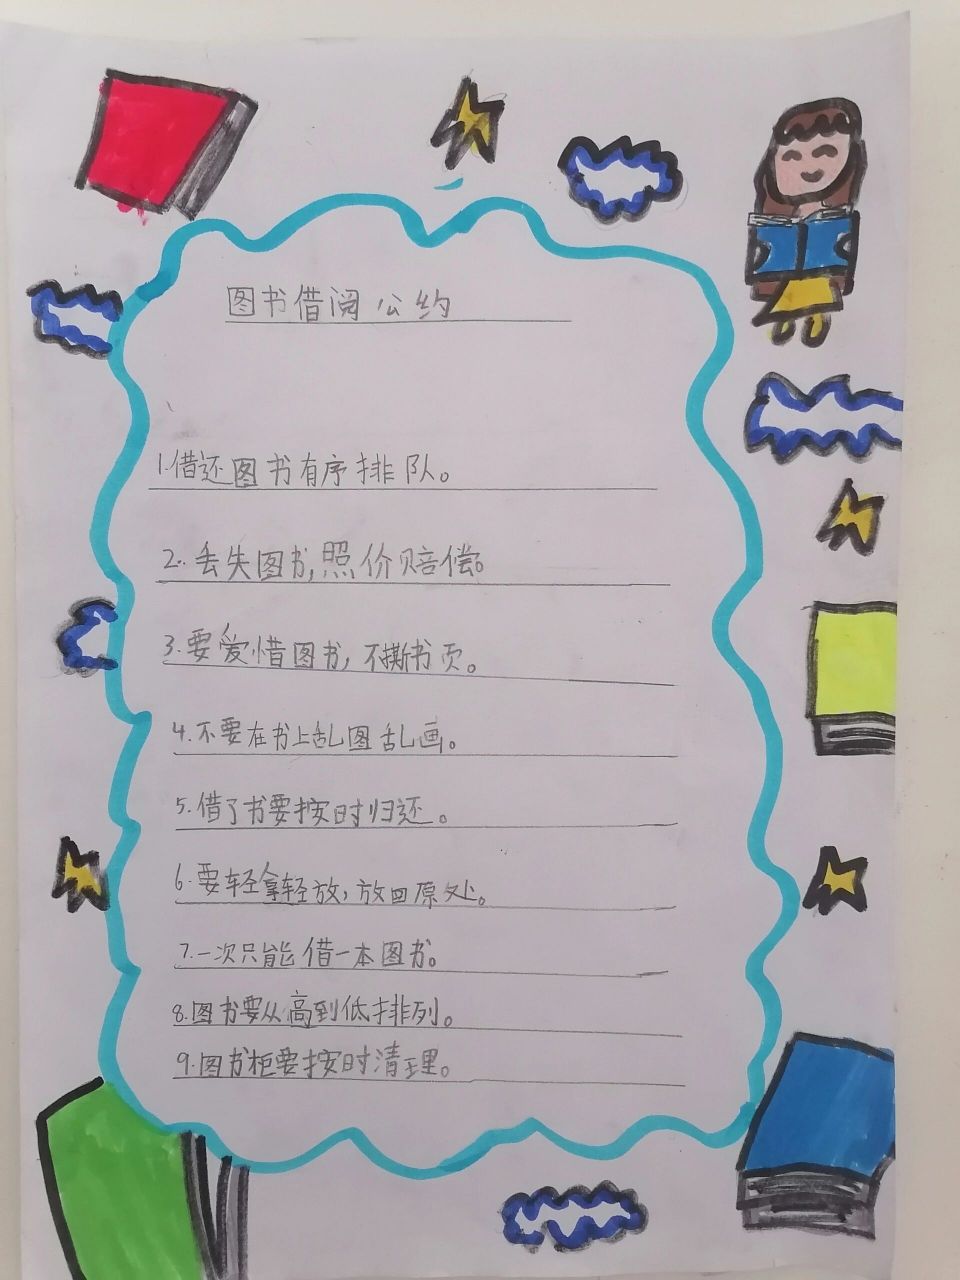 图书借阅公约
1.借还图书有序排队。
2.丢失图书,照价赔偿。
3.要爱惜图书,不撕书页。
4.不要在书上乱图乱画。
5.借了书要按时归还。
6.要轻拿轻放,放回原处。
7.一次只能借一本图书。
8.图书要从高到低排列。
9.图书柜要按时清理。